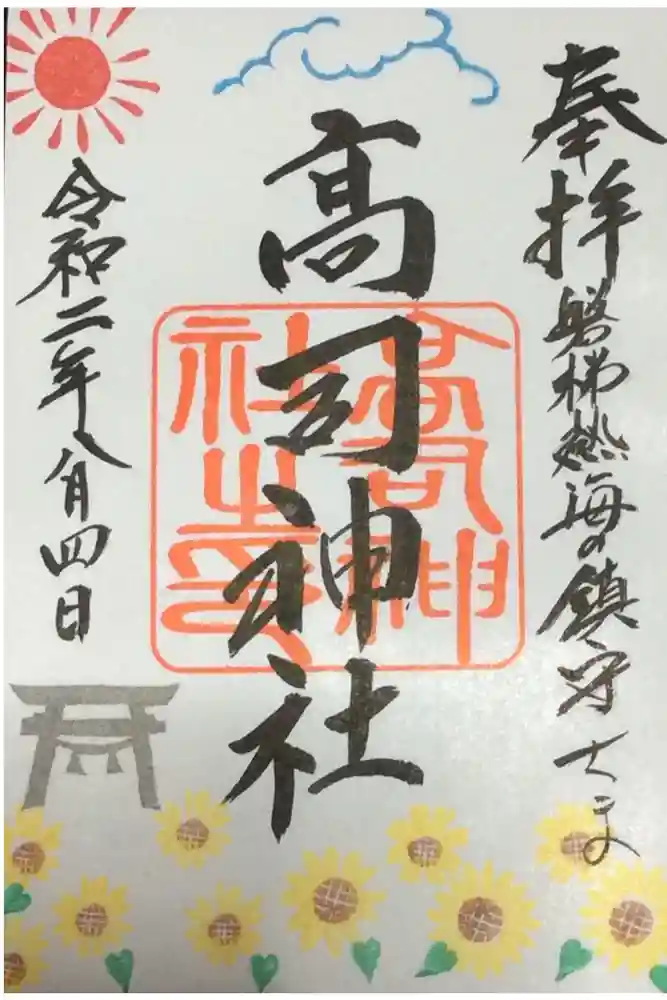 奉拝 磐梯熱海の鎮守
高司神社
高司神社之印
令和二年八月四日